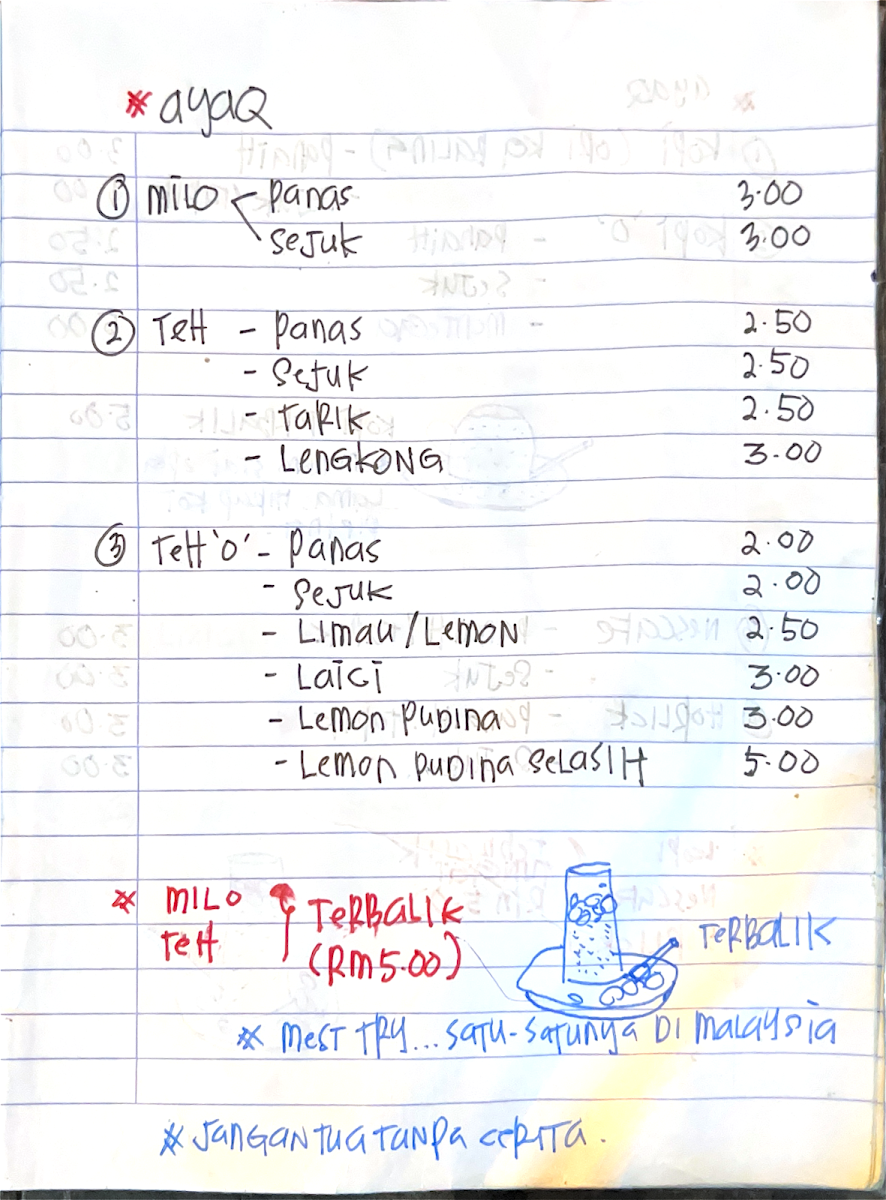 * ayaQ
① MILO < Panas 3.00
Sejuk 3.00
② TeH - Panas 2.50
- Sejuk 2.50
- TaRIK 2.50
- LengKONG 3.00
③ TeH 'O' - Panas 2.00
- Sejuk 2.00
- Limau / Lemon 2.50
- Laici 3.00
- Lemon PuDina 3.00
- Lemon PuDina SeLaSIH 5.00
* MILO TeRBaLIK
TeH (RM 5.00)
TeRBaLIK
* MEST TRY... SATU-SATUNYA DI MaLaysia
* Jangan Tua Tanpa CeRITa.